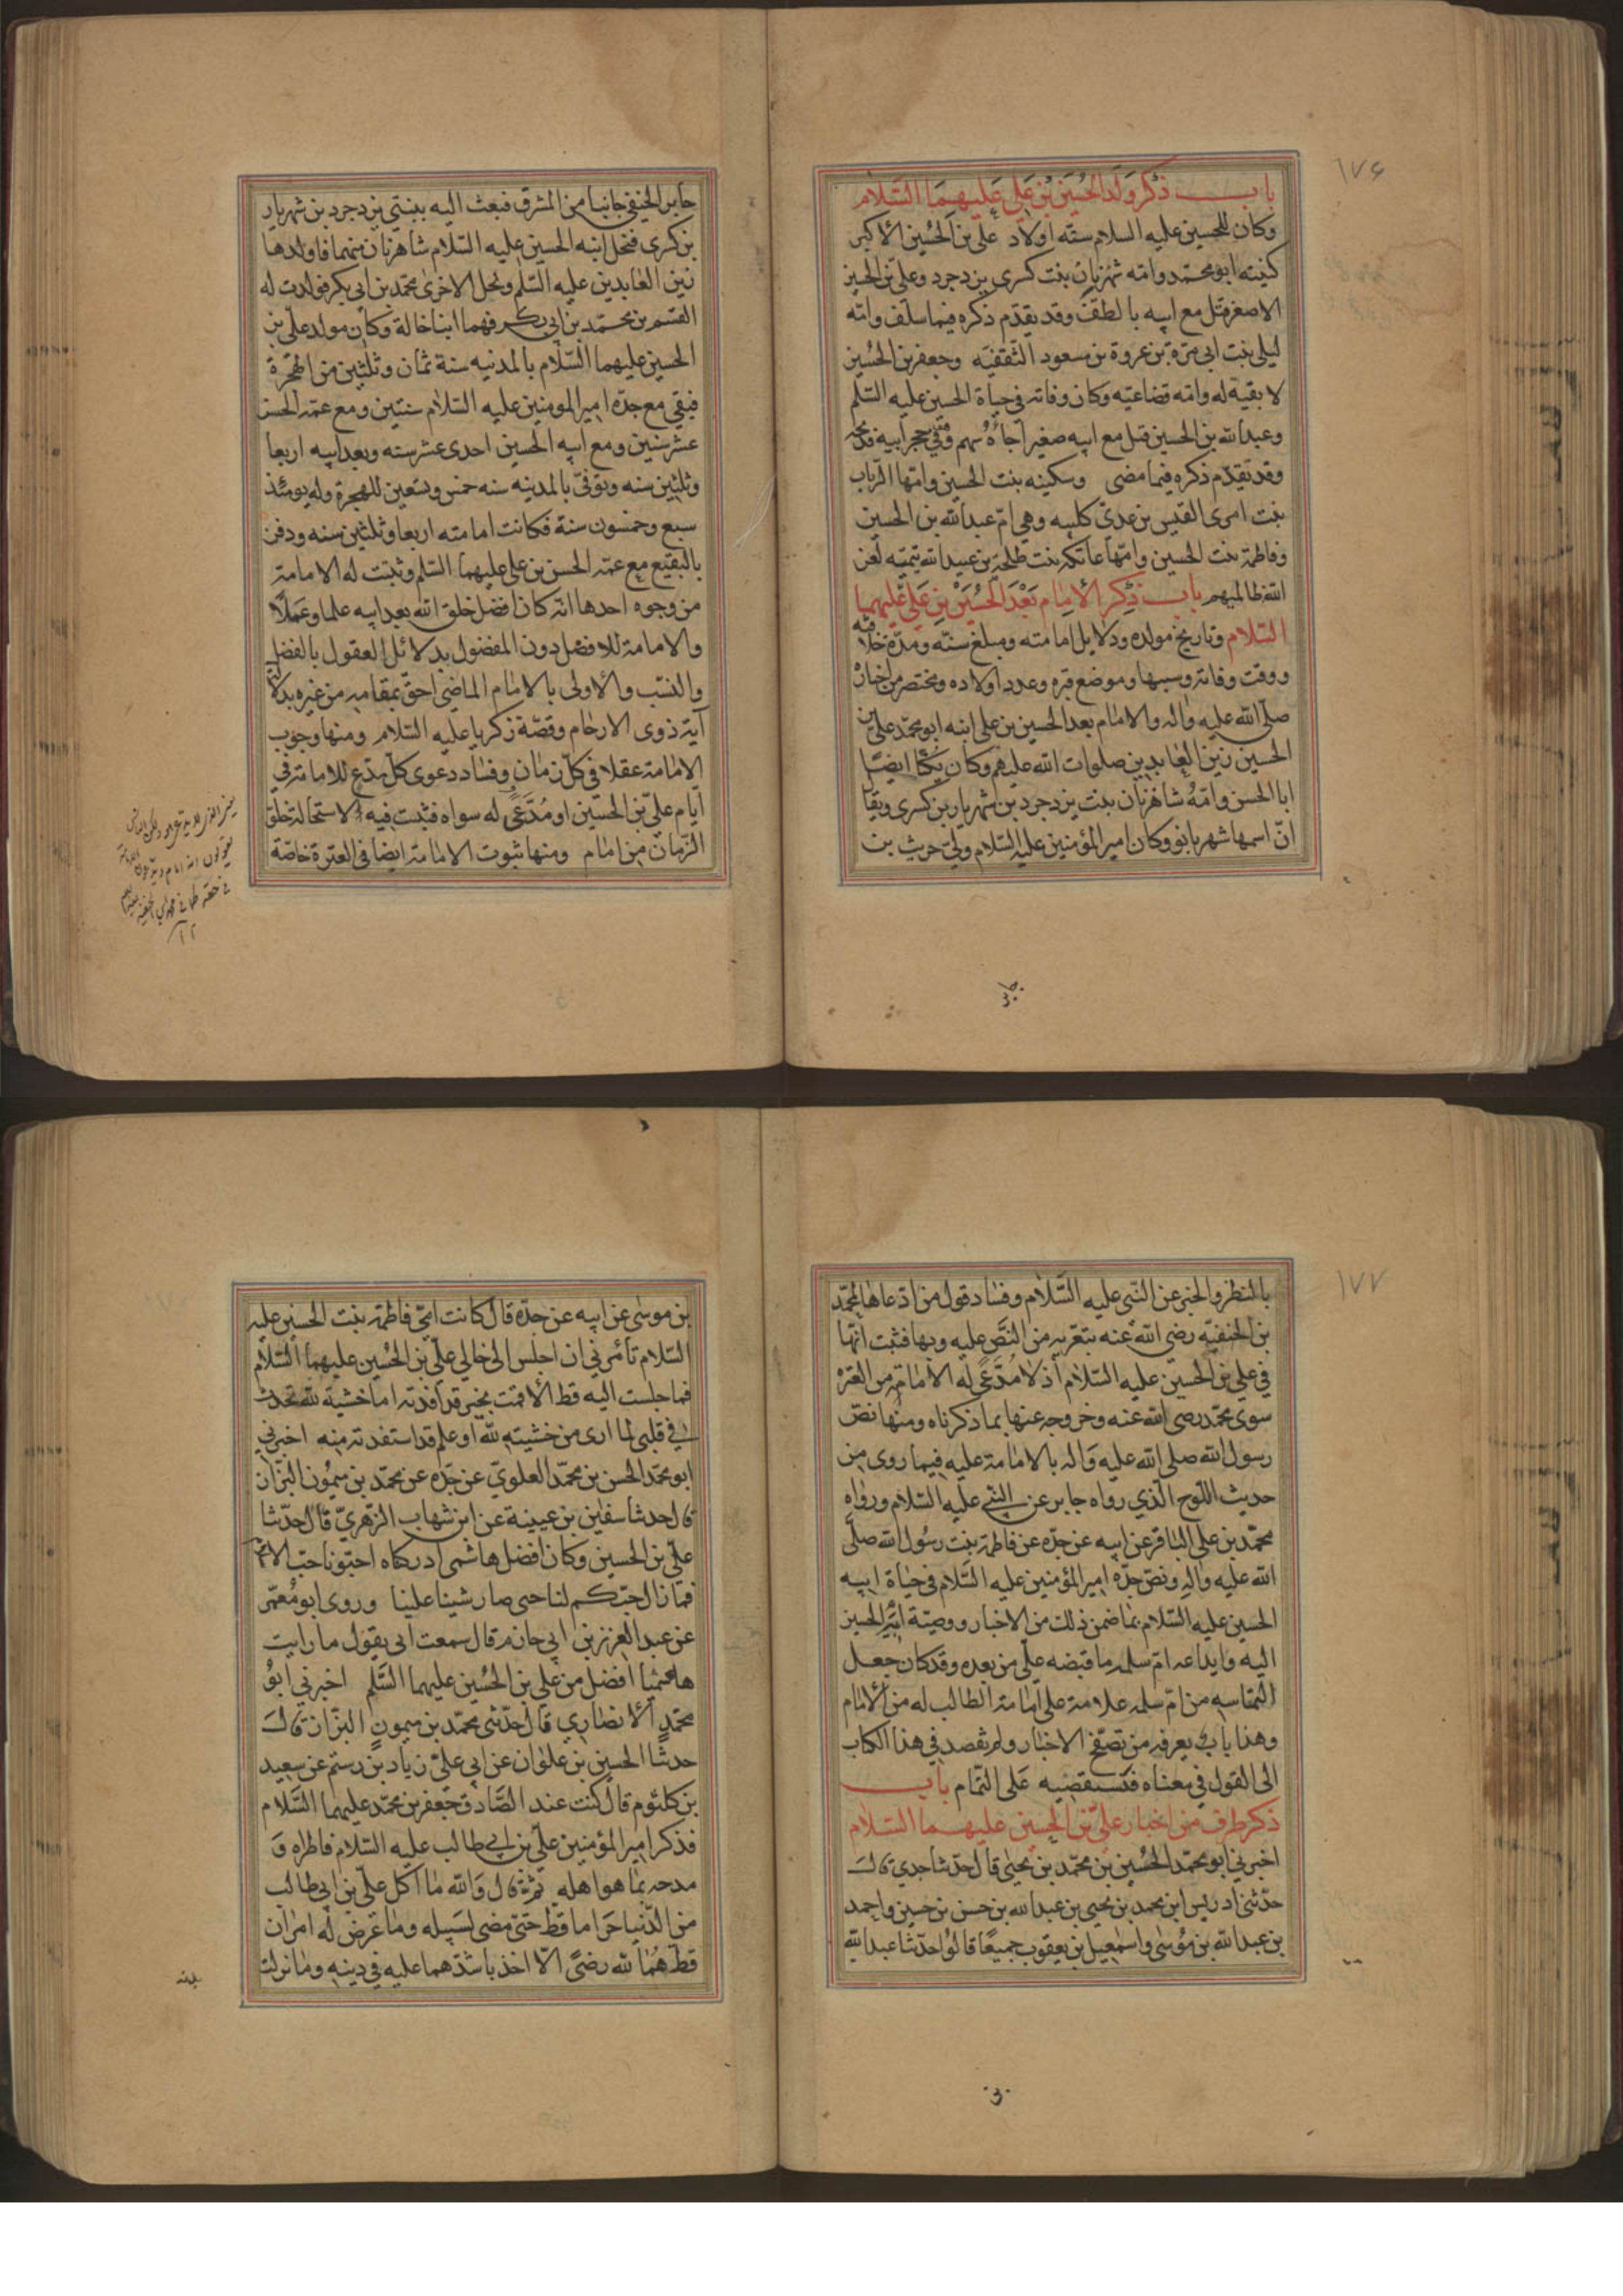 ١٧۶
باب ذكر ولد الحسين بن علي عليهما السلام
وكان للحسين عليه السلام ستة اولاد علي بن الحسين الاكبر
كنيته ابو محمد وامه شهزبان بنت كسرى يزدجرد وعلي بن الحسين
الاصغر قتل مع ابيه بالطف وقد تقدم ذكره فيما سلف وامه
ليلى بنت ابي مرة بن عروة بن مسعود الثقفيه وجعفر بن الحسين
لا بقية له وامه قضاعيته وكان وفاته في حياة الحسين عليه السلم
وعبد الله بن الحسين قتل مع ابيه صغيرا جاءه سهم وهو في حجر ابيه فذبحه
وقد تقدم ذكره فيما مضى وسكينه بنت الحسين وامها الرباب
بنت امرى القيس بن عدي كلبيه وهي ام عبد الله بن الحسين
وفاطمة بنت الحسين وامها عاتكه بنت طلحة بن عبيد الله تيميه لعن
الله ظالميهم باب ذكر الامام بعد الحسين بن علي عليهما
السلام وتاريخ مولده ودلايل امامته ومبلغ سنه ومدة خلافته
ووقت وفاته وسببها وموضع قبره وعدد اولاده ومختصر من اخباره
صلى الله عليه واله والامام بعد الحسين بن علي ابنه ابو محمد علي بن
الحسين زين العابدين صلوات الله عليهم وكان يكنا ايضا
ابا الحسن وامه شاهزنان بنت يزدجرد بن شهريار بن كسرى ويقال
ان اسمها شهربانو وكان امير المؤمنين عليه السلام ولي حريث بن
جابر الحنفي جانبا من المشرق فبعث اليه ببنتي يزدجرد بن شهريار
بن كسرى فنحل ابنه الحسين عليه السلام شاهزنان منهما فاولدها
زين العابدين عليه السلم ونحل الاخرى محمد بن ابي بكر فولدت له
القسم بن محمد بن ابي بكر فهما ابنا خالة وكان مولد علي بن
الحسين عليهما السلام بالمدينه سنة ثمان وثلثين من الهجرة
فبقي مع جده امير المومنين عليه السلام سنتين ومع عمه الحسن
عشر سنين ومع ابيه الحسين احدى عشر سنه وبعد ابيه اربعا
وثلثين سنه وتوفي بالمدينه سنه خمس وتسعين للهجرة وله يومئذ
سبع وخمسون سنة فكانت امامته اربعا وثلثين سنه ودفن
بالبقيع مع عمه الحسن بن علي عليهما السلم وثبتت له الامامة
من وجوه احدها انه كان افضل خلق الله بعد ابيه علما وعملا
والامامة للافضل دون المفضول بدلائل العقول بالفضل
والنسب والاولى بالامام الماضي احق بمقامه من غيره بدلالة
آية ذوى الارحام وقصة زكريا عليه السلام ومنها وجوب
الامامة عقلا في كل زمان وفساد دعوى كل مدع للامامة في
ايام علي بن الحسين او مدعى له سواه فثبت فيه لاستحالة خلو
الزمان من امام ومنها ثبوت الامامة ايضا في العترة خاصة
١٧٧
بالنظر والخبر عن النبي عليه السلام وفساد قول من ادعاها لمحمد
بن الحنفيه رضي الله عنه بتعريه من النص عليه وبها فثبت انها
في علي بن الحسين عليه السلام اذ لا مدعى له الامامة من العترة
سوى محمد رضي الله عنه وخروجه عنها بما ذكرناه ومنها نص
رسول الله صلى الله عليه واله بالامامة عليه فيما روى من
حديث اللوح الذي رواه جابر عن النبي عليه السلام ورواه
محمد بن علي الباقر عن ابيه عن جده عن فاطمة بنت رسول الله صلى
الله عليه واله ونص جده امير المؤمنين عليه السلام في حياة ابيه
الحسين عليه السلام بما ضمن ذلك من الاخبار ووصية ابيه الحسين
اليه وايداعه ام سلمه ما قبضه علي من بعده وقد كان جعل
التماسه من ام سلمه علامة على امامة الطالب له من الانام
وهذا باب يعرفه من تصفح الاخبار ولم نقصد في هذا الكتاب
الى القول في معناه فنستقصيه على التمام باب
ذكر طرف من اخبار علي بن الحسين عليهما السلام
اخبرني ابو محمد الحسين بن محمد بن يحيى قال حدثنا جدي قال
حدثني ادريس ابن محمد بن يحيى بن عبد الله بن حسن بن حسين واحمد
بن عبد الله بن موسى واسمعيل بن يعقوب جميعا قالوا حدثنا عبد الله
بن موسى عن ابيه عن جده قال كانت امي فاطمة بنت الحسين عليه
السلام تأمرني ان اجلس الى خالي علي بن الحسين عليهما السلام
فما جلست اليه قط الا قمت بخير قد افدته اما خشية لله تحدث
في قلبي لما ارى من خشيته لله او علم قد استفدته منه اخبرني
ابو محمد الحسن بن محمد العلوي عن جده عن محمد بن ميمون البزان
قال حدثنا سفين بن عيينة عن ابن شهاب الزهري قال حدثنا
علي بن الحسين وكان افضل هاشمي ادركناه احبونا حب الاسلام
فما زال حبكم لنا حتى صار شينا علينا وروى ابو معمر
عن عبد العزيز بن ابي حازم قال سمعت ابي يقول ما رايت
هاشميا افضل من علي بن الحسين عليهما السلم اخبرني ابو
محمد الانصاري قال حدثني محمد بن ميمون البزان قال
حدثنا الحسين بن علوان عن ابي علي زياد بن رستم عن سعيد
بن كلثوم قال كنت عند الصادق جعفر بن محمد عليهما السلام
فذكر امير المؤمنين علي بن ابي طالب عليه السلام فاطراه و
مدحه بما هو اهله ثم قال والله ما اكل علي بن ابي طالب
من الدنيا حراما قط حتى مضى لسبيله وما عرض له امران
قط هما لله رضى الا اخذ باشدهما عليه في دينه وما نزلت